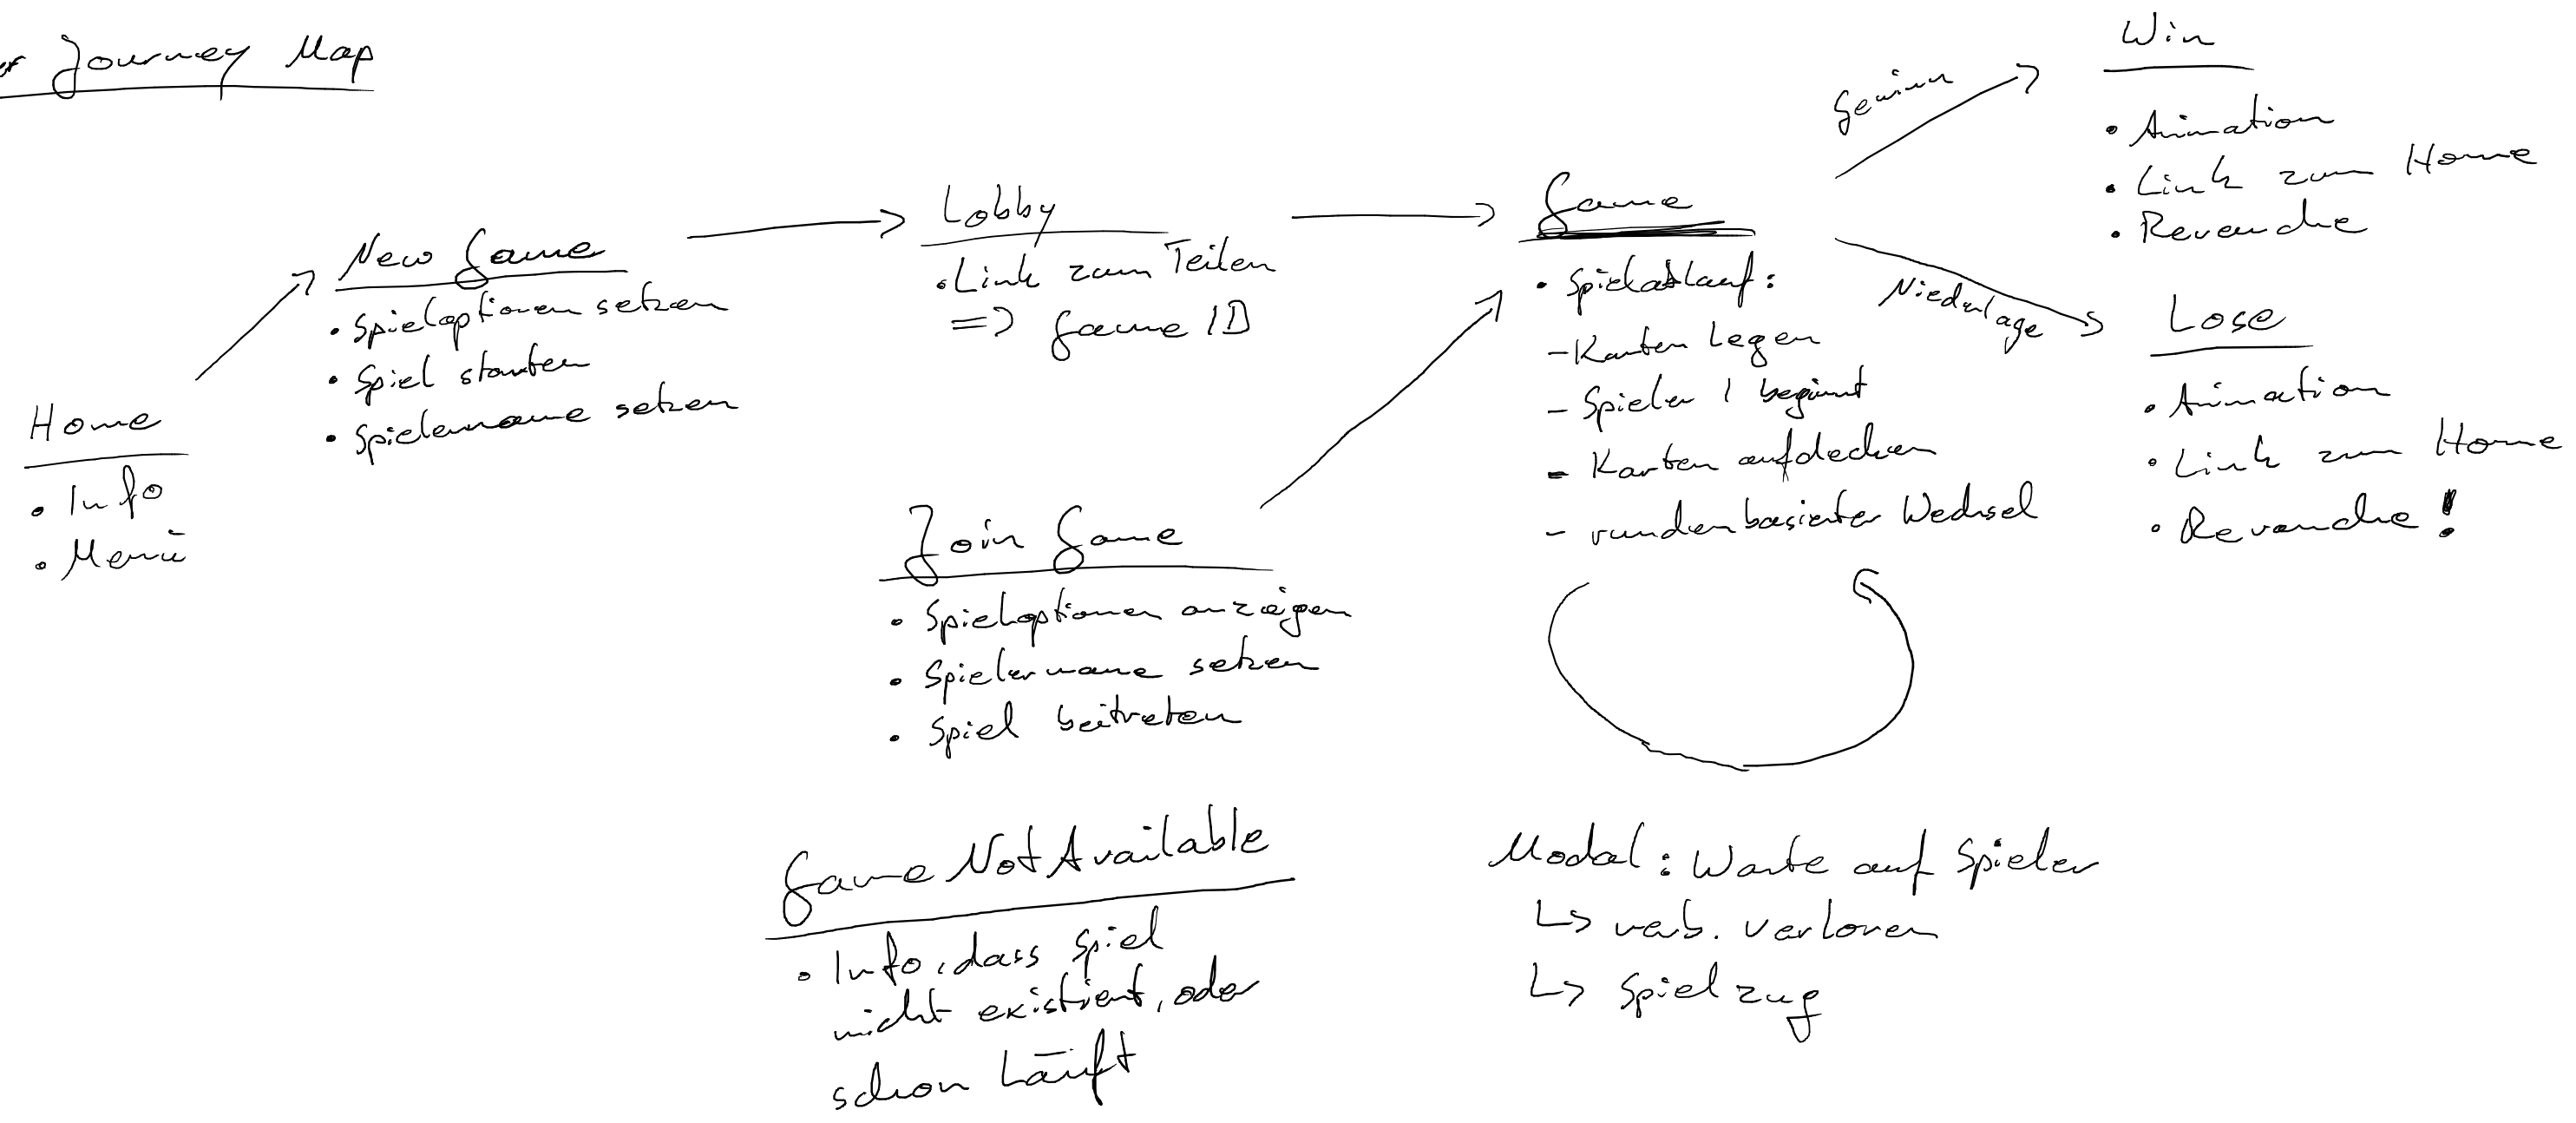 Journey Map
Home
• Info
• Menü
New Game
• Spieloptionen setzen
• Spiel starten
• Spielername setzen
Lobby
• Link zum Teilen
=> Game ID
Join Game
• Spieloptionen anzeigen
• Spielername setzen
• Spiel beitreten
Game Not Available
• Info, dass Spiel
nicht existiert, oder
schon läuft
Game
• Spielablauf:
- Karten legen
- Spieler 1 beginnt
- Karten aufdecken
- rundenbasierter Wechsel
Modal: Warte auf Spieler
↳ verb. verloren
↳ Spielzug
Gewinn
Niederlage
Win
• Animation
• Link zum Home
• Revanche
Lose
• Animation
• Link zum Home
• Revanche!